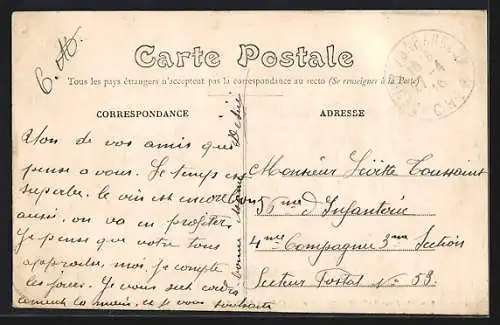 Carte Postale
Tous les pays étrangers n'acceptent pas la correspondance au recto (Se renseigner à la Poste)
CORRESPONDANCE
ADRESSE
de vos amis qui
pense a vous. Le temps est
superbe, le vin est encore bon
aussi, on va en profiter
Je pense que votre tour
approche, moi je compte
les jours. Je vous
la main, et je vous souhaite
bonne
Monsieur Toussaint
56me d'Infanterie
4me Compagnie 3me Section
Secteur Postal No 53.